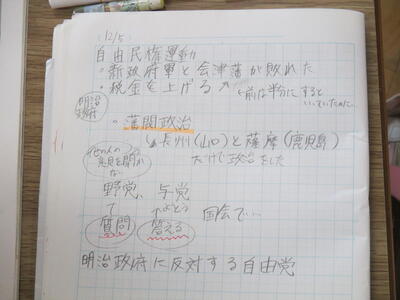 (12/5)
自由民権運動
・新政府軍と会津藩が敗れた
・税金を上げる
↑前は半分にすると
いっていたのに…
明治
政府
・藩閥政治
↳長州(山口)と薩摩(鹿児島)
だけで政治をした
他の人の
意見を聞か
ない
野党、与党
よとう
国会で…
質問 答える
明治政府に反対する自由党